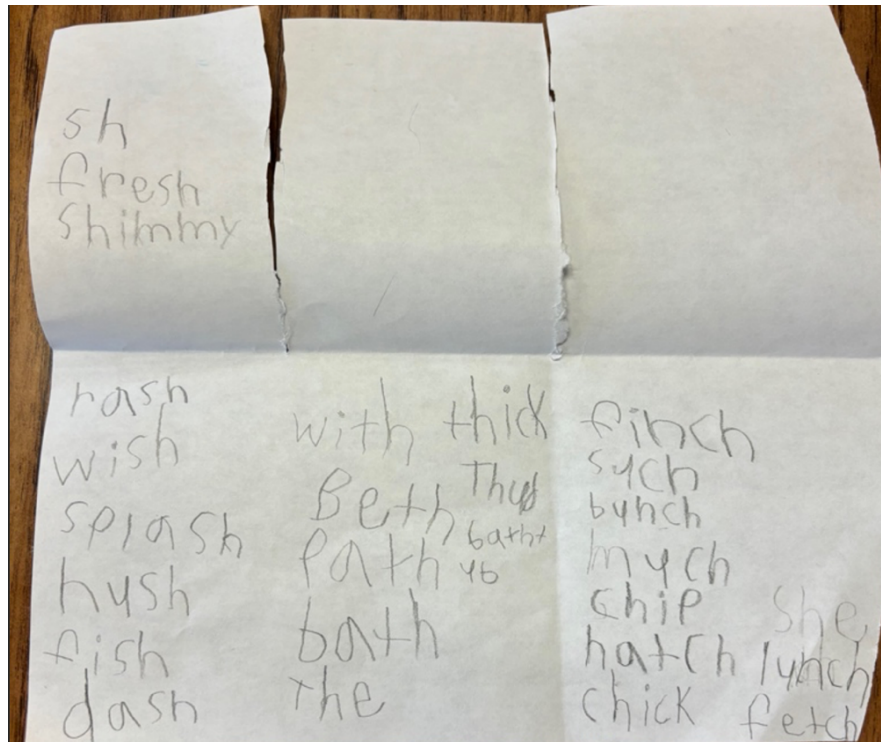 sh
fresh
shimmy
rash
wish
splash
hush
fish
dash
with thick
Beth Thud
path batht
ub
bath
the
finch
such
bunch
much
chip she
hatch lunch
chick fetch